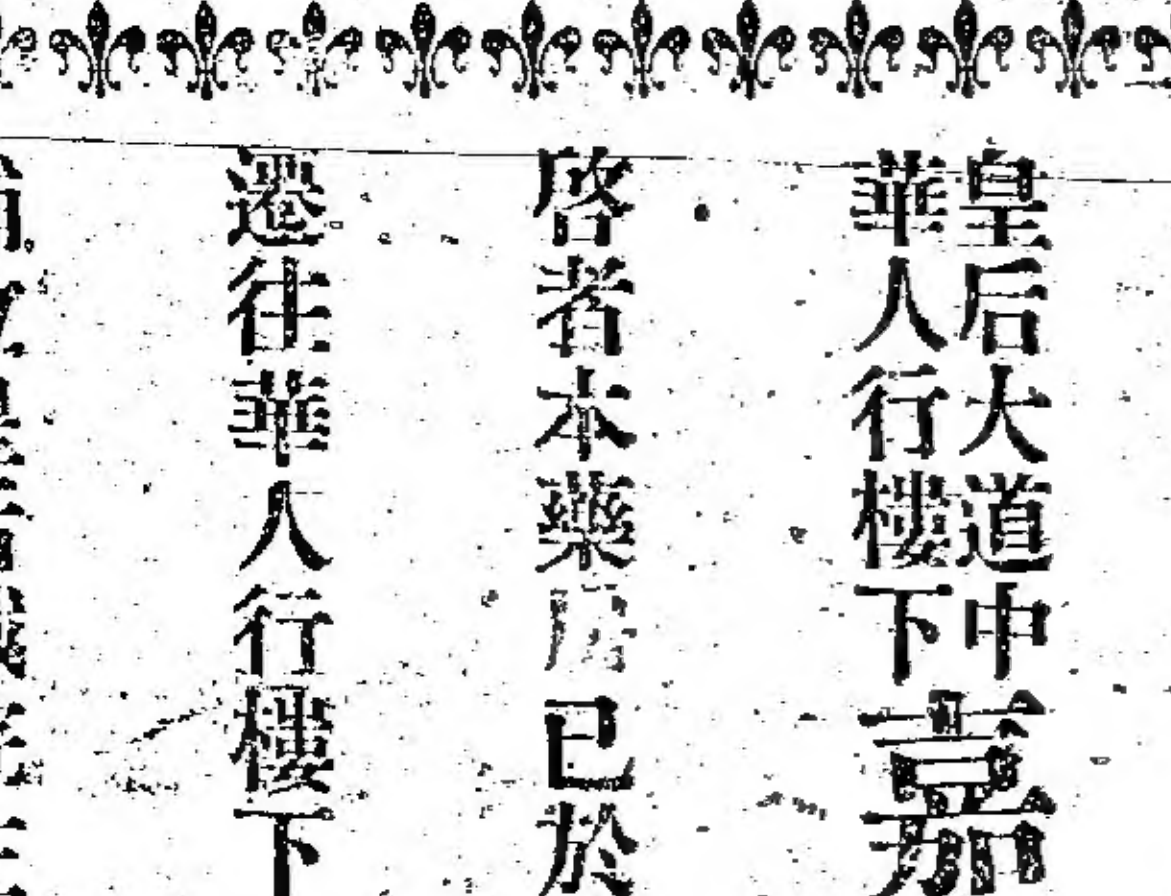 皇后大道中
華人行樓下
嘉
啓者本藥房已於
遷往華人行樓下